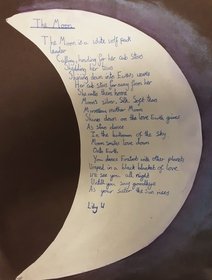 The Moon
The Moon is a white wolf pack
leader
Calling, howling for her cub stars
Shedding her tears
Shining down into Earth's
Her cub stars far away from her
She wants them home
Moon's silver, silk, soft tears
Marvellous mother Moon
Shines down on the love Earth gives
As stars dance
In the ballroom of the sky
Moon smiles love down
Onto Earth
You dance Endless into other planets
Draped in a black blanket of love
We see you all night
Until you say goodbye
As your sister the Sun rises
Lily U